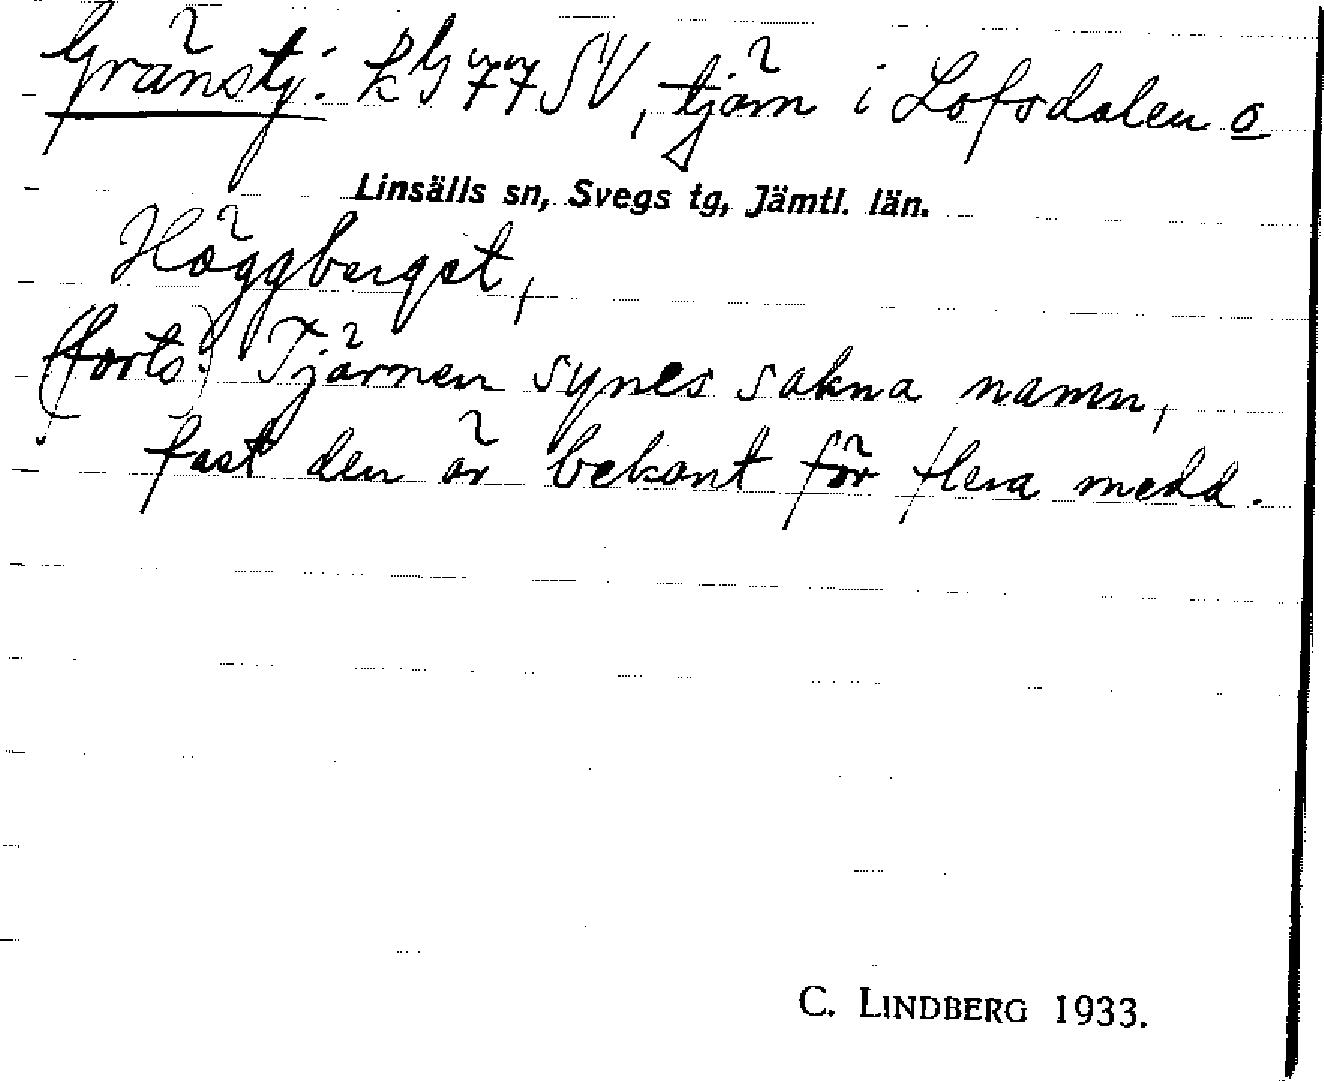 Gränstj: kG 77 SV, tjärn i Lofsdalen o
Linsälls sn, Svegs tg, Jämtl. län.
Höggberget,
(forts) Tjärnen synes sakna namn,
fast den är bekant för flera medd.
C. LINDBERG 1933.